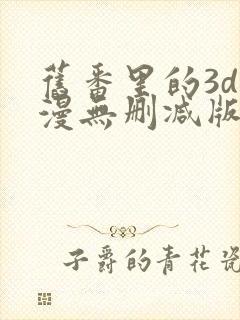 舊番里的3d
漫無删减版
子爵的青花瓷